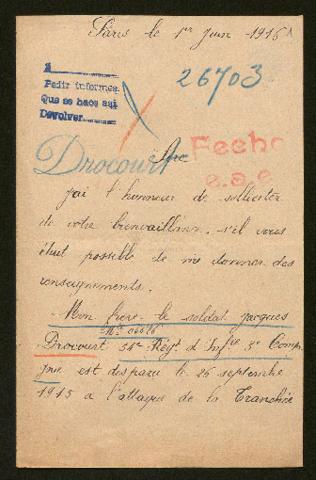 Paris le 1er Juin 1916
A
Pedir informes
Que se hace aqui
Devolver
26703
Drocourt
Sire
Fecho
J'ai l'honneur de solliciter
de votre bienveillance, s'il vous
était possible de me donner des
renseignements.
Mon frère le soldat Jacques
Drocourt 51e Régt d'Infie 3e Comp.
est disparu le 26 septembre
1915 a l'attaque de la Tranchée